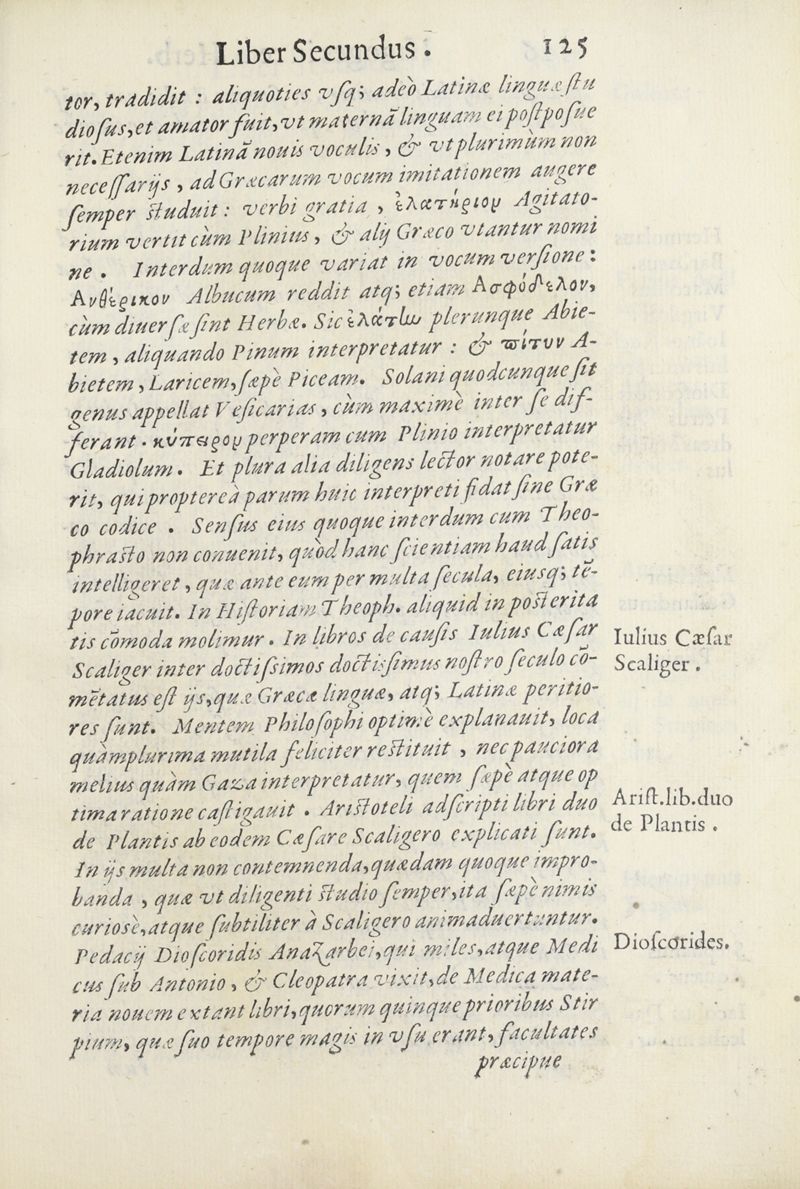 Liber Secundus . 125
tor, tradidit : aliquoties vſq; adeò Latinæ linguæ ſtu
dioſus, et amator fuit, vt maternā linguam ei poſtpoſue
rit. Etenim Latinā nouis voculis , & vt plurimùm non
neceſſarijs , ad Græcarum vocum imitationem augere
ſemper ſtuduit : verbi gratia , ἐλατήριον Agitato-
rium vertit cùm Plinius , & alij Græco vtantur nomi
ne . Interdum quoque variat in vocum verſione :
Ανθέρικον Albucum reddit atq; etiam Ασφόδελον,
cùm diuerſæ ſint Herbæ. Sic ἐλάτην plerunque Abie-
tem , aliquando Pinum interpretatur : & πίτυν A-
bietem , Laricem, ſæpè Piceam. Solani quodcunque ſit
genus appellat Veſicarias , cùm maximè inter ſe dif-
ferant . κύπειρον perperam cum Plinio interpretatur
Gladiolum. Et plura alia diligens lector notare pote-
rit, qui proptereà parum huic interpreti fidat ſine Græ
co codice . Senſus eius quoque interdum cum Theo-
phraſto non conuenit, quòd hanc ſcientiam haud ſatis
intelligeret , quæ ante eum per multa ſecula, eiusq; tē-
pore iacuit. In Hiſtoriam Theoph. aliquid in poſterita
tis cōmoda molimur . In libros de cauſis Iulius Cæſar
Iulius Cæſar
Scaliger inter doctiſsimos doctiſsimus noſtro ſeculo cō-
Scaliger .
mētatus eſt ijs, quæ Græcæ linguæ, atq; Latinæ peritio-
res ſunt. Mentem Philoſophi optimè explanauit, loca
quàmplurima mutila feliciter reſtituit , nec pauciora
meliùs quàm Gaza interpretatur, quem ſæpè atque op
tima ratione caſtigauit . Ariſtoteli adſcripti libri duo
Ariſt.lib.duo
de Plantis ab eodem Cæſare Scaligero explicati ſunt.
de Plantis .
In ijs multa non contemnenda, quædam quoque impro-
banda , quæ vt diligenti ſtudio ſemper, ita ſæpè nimis
curiosè, atque ſubtiliter à Scaligero animaduertuntur.
Pedacij Dioſcoridis Anazarbei, qui miles, atque Medi
Dioſcorides.
cus ſub Antonio , & Cleopatra vixit, de Medica mate-
ria nouem extant libri, quorum quinque prioribus Stir
pium, quæ ſuo tempore magis in vſu erant, facultates
præcipue